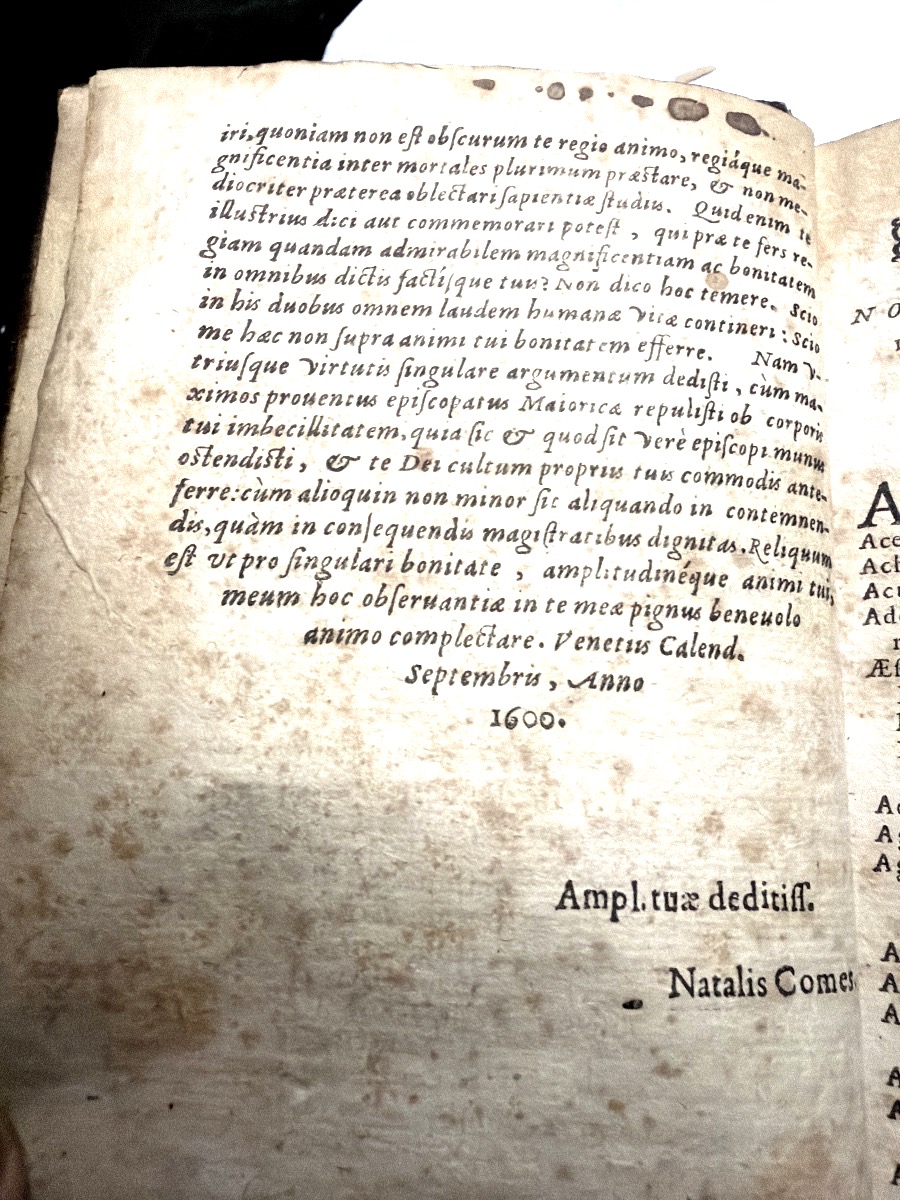 iri, quoniam non eſt obſcurum te regio animo, regiáque ma-
gnificentia inter mortales plurimum præſtare, & non me-
diocriter præterea oblectari ſapientiæ ſtudiis. Quid enim te
illuſtrius dici aut commemorari poteſt, qui præ te fers re-
giam quandam admirabilem magnificentiam ac bonitatem
in omnibus dictis factíſque tuis? Non dico hoc temere. Scio
in his duobus omnem laudem humanæ vitæ contineri: Scio
me hæc non ſupra animi tui bonitatem efferre. Nam v-
triuſque virtutis ſingulare argumentum dediſti, cùm ma-
ximos prouentus epiſcopatus Maioricæ repuliſti ob corporis
tui imbecillitatem, quia ſic & quod ſit verè epiſcopi munus
oſtendiſti, & te Dei cultum propriis tuis commodis ante-
ferre: cùm alioquin non minor ſit aliquando in contemnen-
dis, quàm in conſequendis magiſtratibus dignitas. Reliquum
eſt vt pro ſingulari bonitate, amplitudinéque animi tui,
meum hoc obſeruantiæ in te meæ pignus beneuolo
animo complectare. Venetiis Calend.
Septembris, Anno
1600.
Ampl. tuæ deditiſſ.
Natalis Comes
N O
A
Ace
Ach
Acu
Ade
Æſ
Ac
Ag
Ag
A
A
A
A
A
A